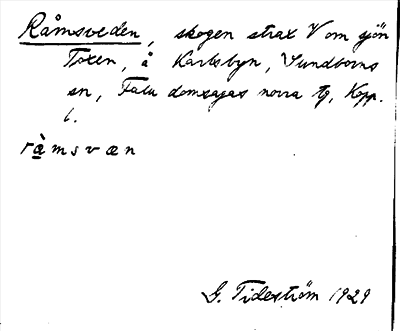 Råmsveden, skogen strax V om sjön
Toxen, å Karlsbyn, Sundborns
sn, Falu domsagas norra tg, Kopp.
l.
ràmsvæn
G. Tideström 1929